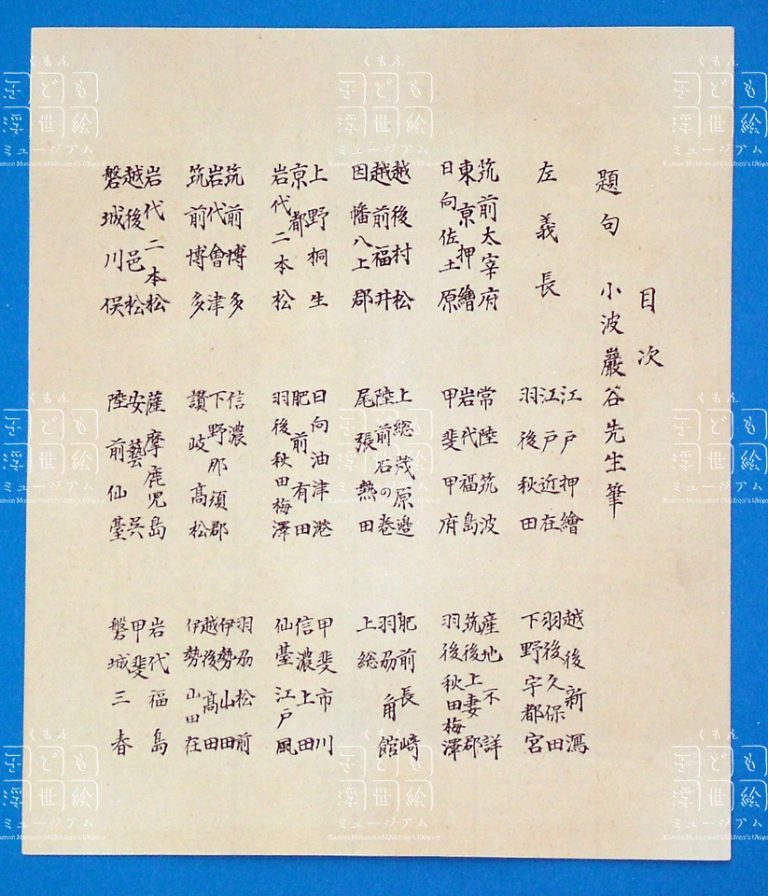 目次
題句 小波巖谷先生筆
左義長
筑前太宰府
東京押繪
日向佐土原
越後村松
越前福井
因幡八上郡
上野桐生
京都
岩代二本松
筑前博多
岩代會津
筑前博多
岩代二本松
越後邑松
磐城川俣
江戸押繪
江戸近在
羽後秋田
常陸筑波
岩代福島
甲斐甲府
上総茂原邉
陸前石の巻
尾張熱田
日向油津港
肥前有田
羽後秋田梅澤
信濃
下野那須郡
讃岐高松
薩摩鹿児島
安藝呉
陸前仙臺
越後新潟
羽後久保田
下野宇都宮
産地不詳
筑後上妻郡
羽後秋田梅澤
肥前長崎
羽刕角館
上総
甲斐市川
信濃上田
仙臺江戸風
羽刕松前
伊勢山田
越後高田
伊勢山田在
岩代福島
甲斐
磐城三春
くもん
子ども
浮世絵
ミュージアム
Kumon Museum of Children's Ukiyo-e